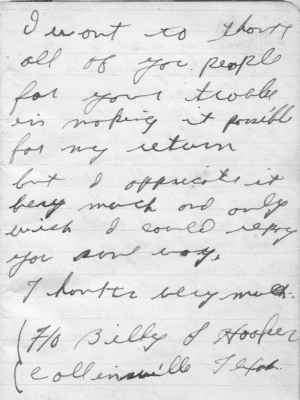 I wont to thank
all of you people
for your trouble
in making it possible
for my return
but I appricate it
very much and only
wish I could repay
you som way.
Thanks very much.
F/O Billy J Hooper
Collinsville Texas.